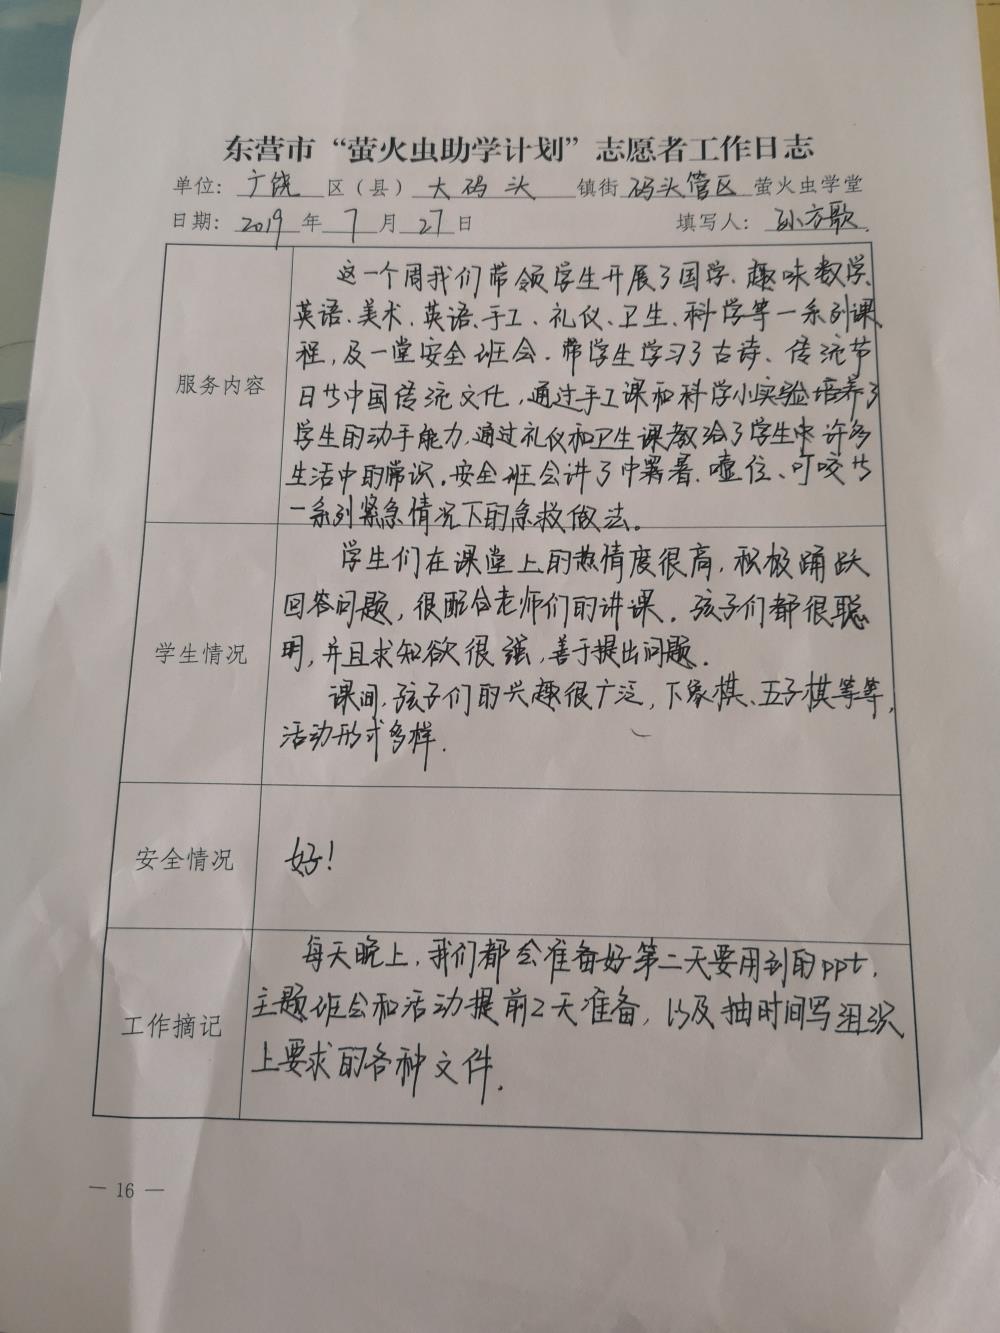 东营市“萤火虫助学计划”志愿者工作日志
单位：广饶 区（县）大码头 镇街 码头管区 萤火虫学堂
日期：2019 年 7 月 27 日 填写人：孙方歌
服务内容
这一个周我们带领学生开展了国学、趣味数学、
英语、美术、英语、手工、礼仪、卫生、科学等一系列课
程，及一堂安全班会。带学生学习了古诗、传统节
日等中国传统文化，通过手工课和科学小实验培养了
学生的动手能力，通过礼仪和卫生课教给了学生许多
生活中的常识。安全班会讲了中暑、噎住、叮咬等
一系列紧急情况下的急救做法。
学生情况
学生们在课堂上的热情度很高，积极踊跃
回答问题，很配合老师们的讲课。孩子们都很聪
明，并且求知欲很强，善于提出问题。
课间，孩子们的兴趣很广泛，下象棋、五子棋等等，
活动形式多样.
安全情况
好！
工作摘记
每天晚上，我们都会准备好第二天要用到的ppt，
主题班会和活动提前2天准备，以及抽时间写组织
上要求的各种文件.
— 16 —